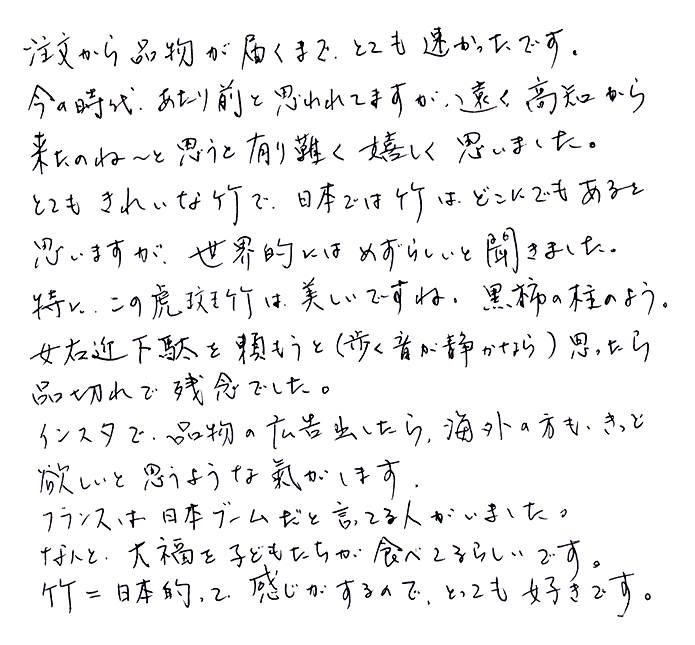 注文から品物が届くまで、とても速かったです。
今の時代、あたり前と思われてますが、遠く高知から
来たのね〜と思うと有り難く嬉しく思いました。
とてもきれいな竹で、日本では竹は、どこにでもあると
思いますが、世界的にはめずらしいと聞きました。
特に、この虎斑竹は、美しいですね。黒柿の柱のよう。
女右近下駄を頼もうと(歩く音が静かなら)思ったら
品切れで残念でした。
インスタで、品物の広告出したら、海外の方も、きっと
欲しいと思うような氣がします。
フランスは日本ブームだと言ってる人がいました。
なんと、大福を子どもたちが食べてるらしいです。
竹=日本的、って感じがするので、とっても好きです。